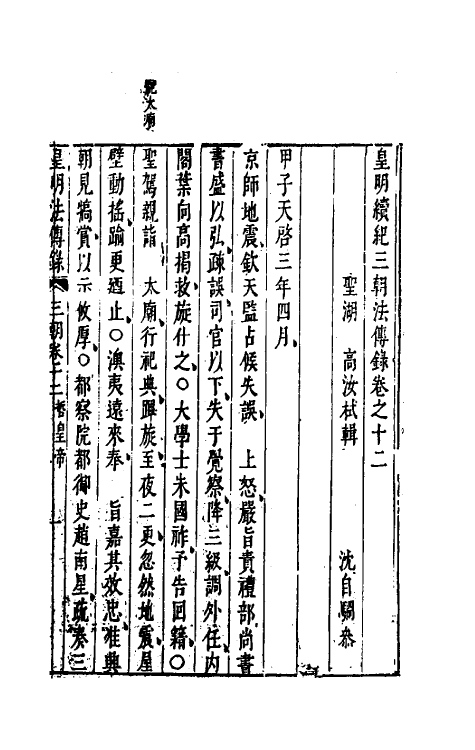 皇明續紀三朝法傳錄卷之十二
聖湖　高汝栻輯　沈自駉叅
甲子天啓三年四月
京師地震欽天監占候失誤　上怒嚴旨責禮部尚書
書盛以弘疎誤司官以下失于覺察降三級調外任內
閣葉向高揭救旋什之○大學士朱國祚予告回籍○
謁太廟
聖駕親詣　太廟行祀典蹕旋至夜二更忽然地震星
壁動搖踰更廼止○澳夷遠來奉　旨嘉其效忠准與
朝見犒賞以示　攸厚○都察院都御史趙南星疏奏三
皇明法傳錄　三朝卷十二　悊皇帝　一